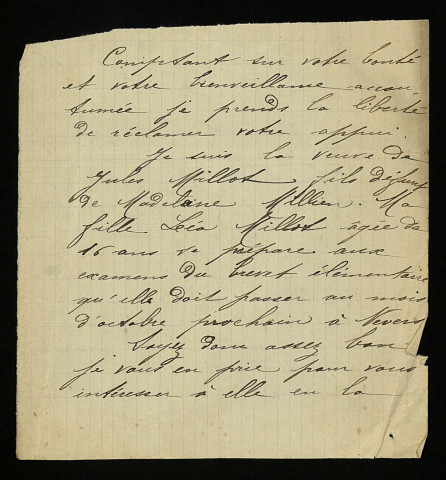 Comptant sur votre bonté
et votre bienveillance accou
tumée je prends la liberté
de réclamer votre appui.
Je suis la veuve de
Jules Millot fils défunt
de Madelaine Millien. Ma
fille Léa Millot âgée de
16 ans se prépare aux
examens du brevet élémentaire
qu'elle doit passer au mois
d'octobre prochain à Nevers
Soyez donc assez bon
je vous en prie pour vous
intéresser à elle en la